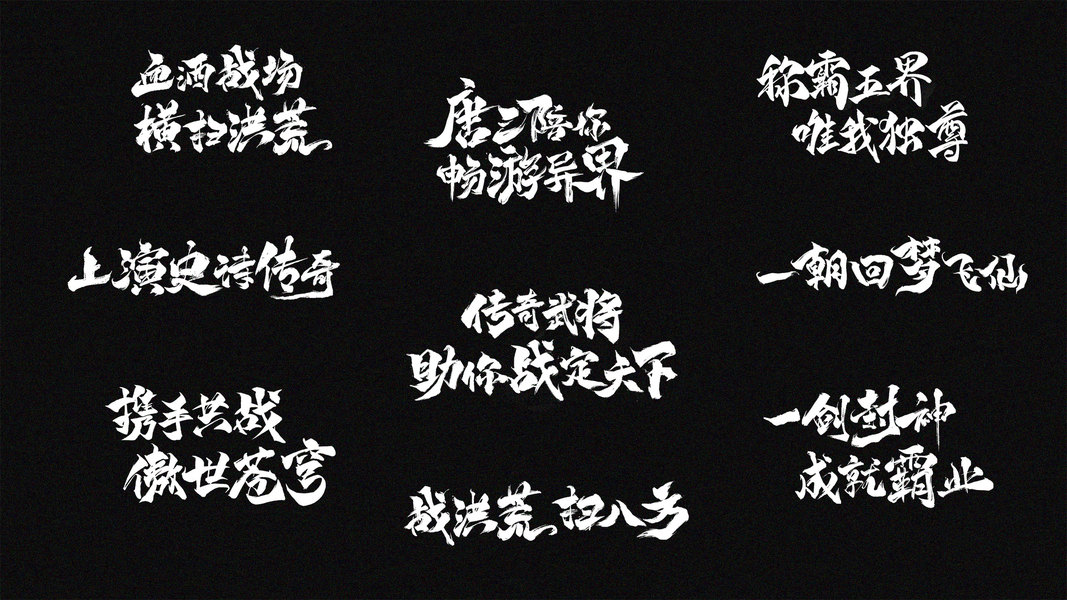 血洒战场
横扫洪荒
唐三陪你
畅游异界
称霸五界
唯我独尊
上演史诗传奇
传奇武将
助你战定天下
一朝回梦飞仙
携手共战
傲世苍穹
战洪荒 扫八方
一剑封神
成就霸业